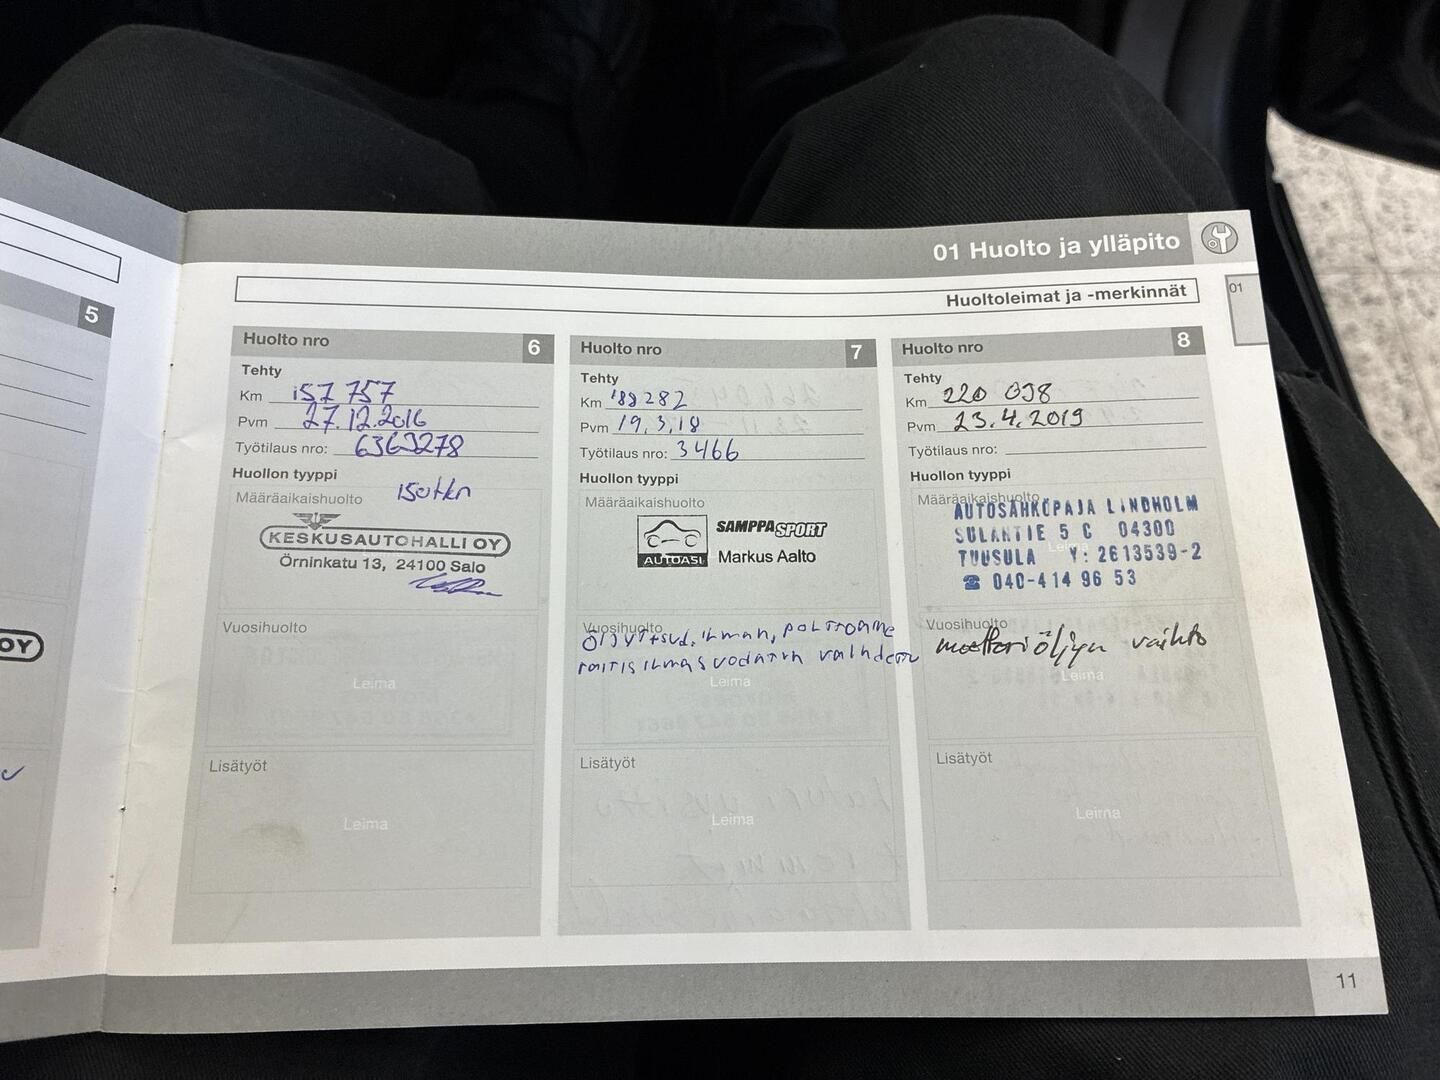 01 Huolto ja ylläpito
01
Huoltoleimat ja -merkinnät
5
OY
Huolto nro 6
Tehty
Km 157 757
Pvm 27.12.2016
Työtilaus nro: 6363278
Huollon tyyppi
Määräaikaishuolto 150tkm
KESKUSAUTOHALLI OY
Örninkatu 13, 24100 Salo
Vuosihuolto
Leima
Lisätyöt
Leima
Huolto nro 7
Tehty
Km 188282
Pvm 19.3.18
Työtilaus nro: 3466
Huollon tyyppi
Määräaikaishuolto
AUTOASI
SAMPPASPORT
Markus Aalto
Vuosihuolto
Öljyt+sud. ilman, polttoaine
raitisilmasuodatin vaihdettu
Leima
Lisätyöt
Leima
Huolto nro 8
Tehty
Km 220 038
Pvm 23.4.2019
Työtilaus nro:
Huollon tyyppi
Määräaikaishuolto
AUTOSÄHKÖPAJA LINDHOLM
SULANTIE 5 C 04300
TUUSULA Y: 2613539-2
☎ 040-414 96 53
Vuosihuolto
moottoriöljyn vaihto
Leima
Lisätyöt
Leima
11